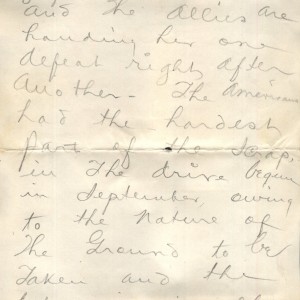 and the Allies are
handing her one
defeat right after
another. The American
had the hardest
part of the scrap,
in the drive begun
in September, owing
to the Nature of
the Ground to be
Taken and the